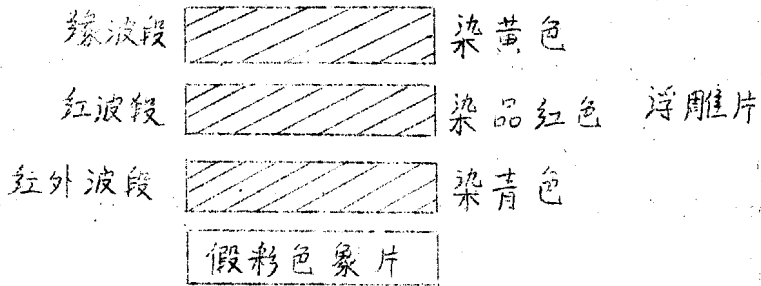 绿波段 染黄色
红波段 染品红色 浮雕片
红外波段 染青色
假彩色象片